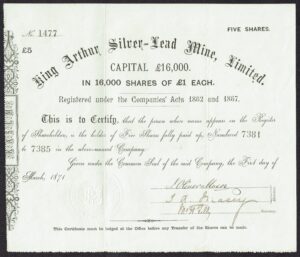 No. 1477
FIVE SHARES.
£5
King Arthur Silver-Lead Mine, Limited.
CAPITAL £16,000.
IN 16,000 SHARES OF £1 EACH.
Registered under the Companies' Acts 1862 and 1867.
This is to Certify, that the person whose name appears in the Register
of Shareholders, is the holder of Five Shares fully paid up, Numbered 7381
to 7385 in the above-named Company.
Given under the Common Seal of the said Company, the First day of
March, 1871
This Certificate must be lodged at the Office before any Transfer of the Shares can be made.